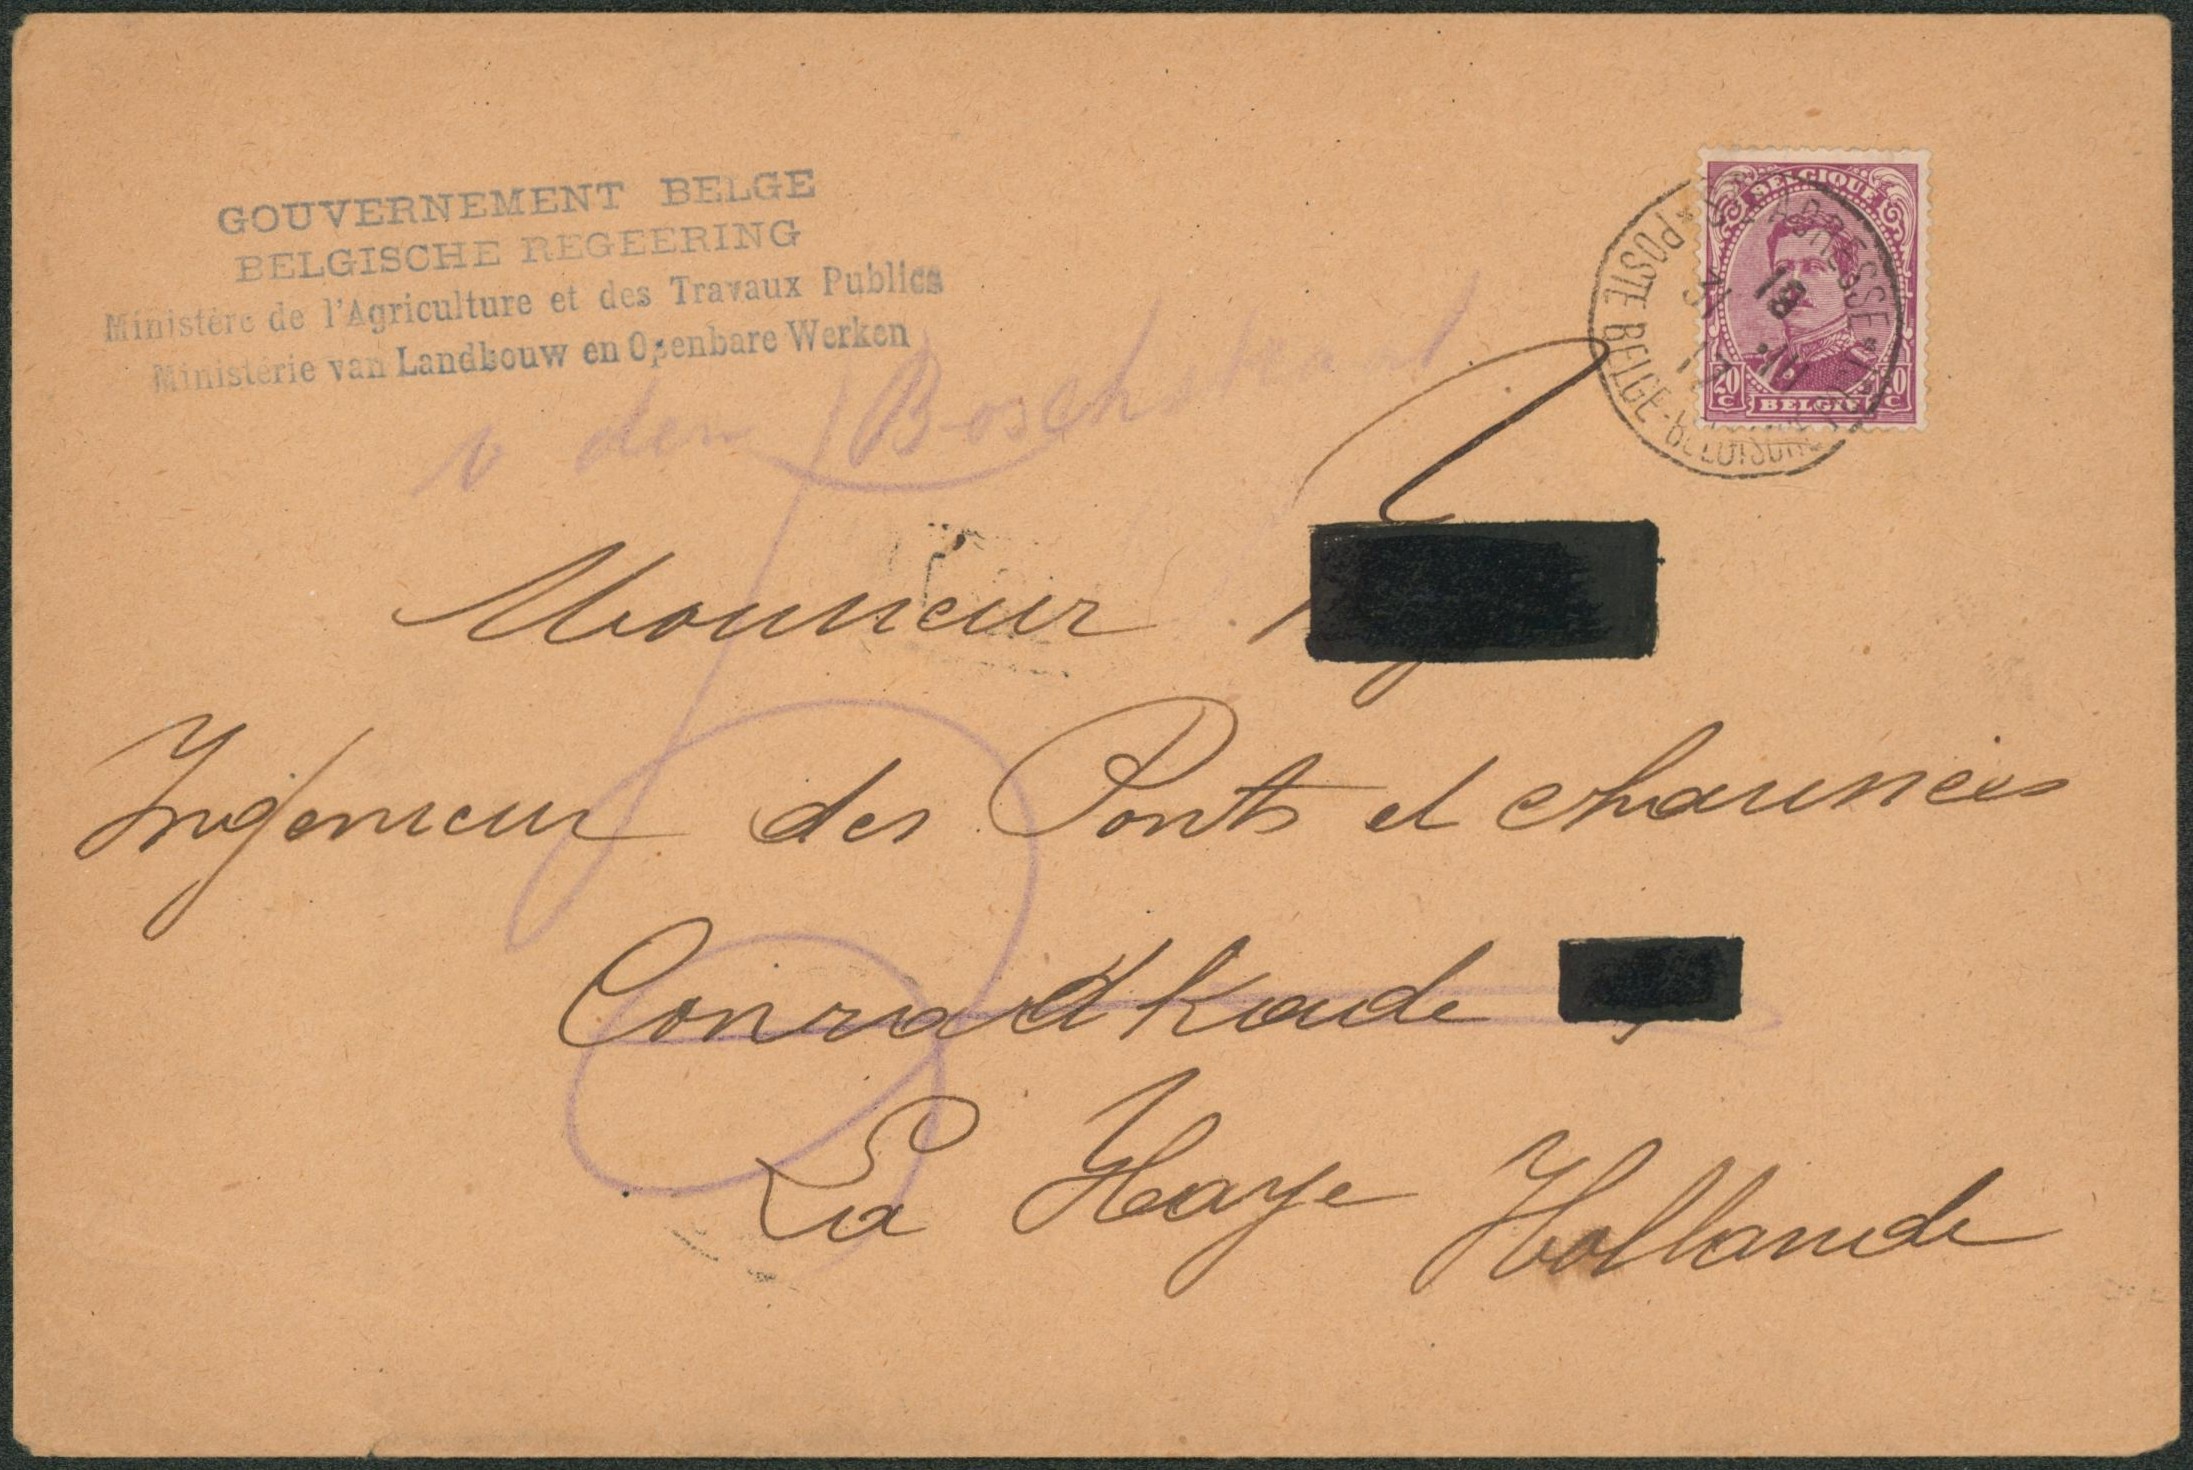 GOUVERNEMENT BELGE
BELGISCHE REGEERING
Ministère de l'Agriculture et des Travaux Publics
Ministerie van Landbouw en Openbare Werken
BELGIQUE
20 C
BELGIË
POSTE BELGE-BELGISCHE
v den Boschstraat
Monsieur
Ingénieur des Ponts et chaussées
Conradkade
La Haye Hollande